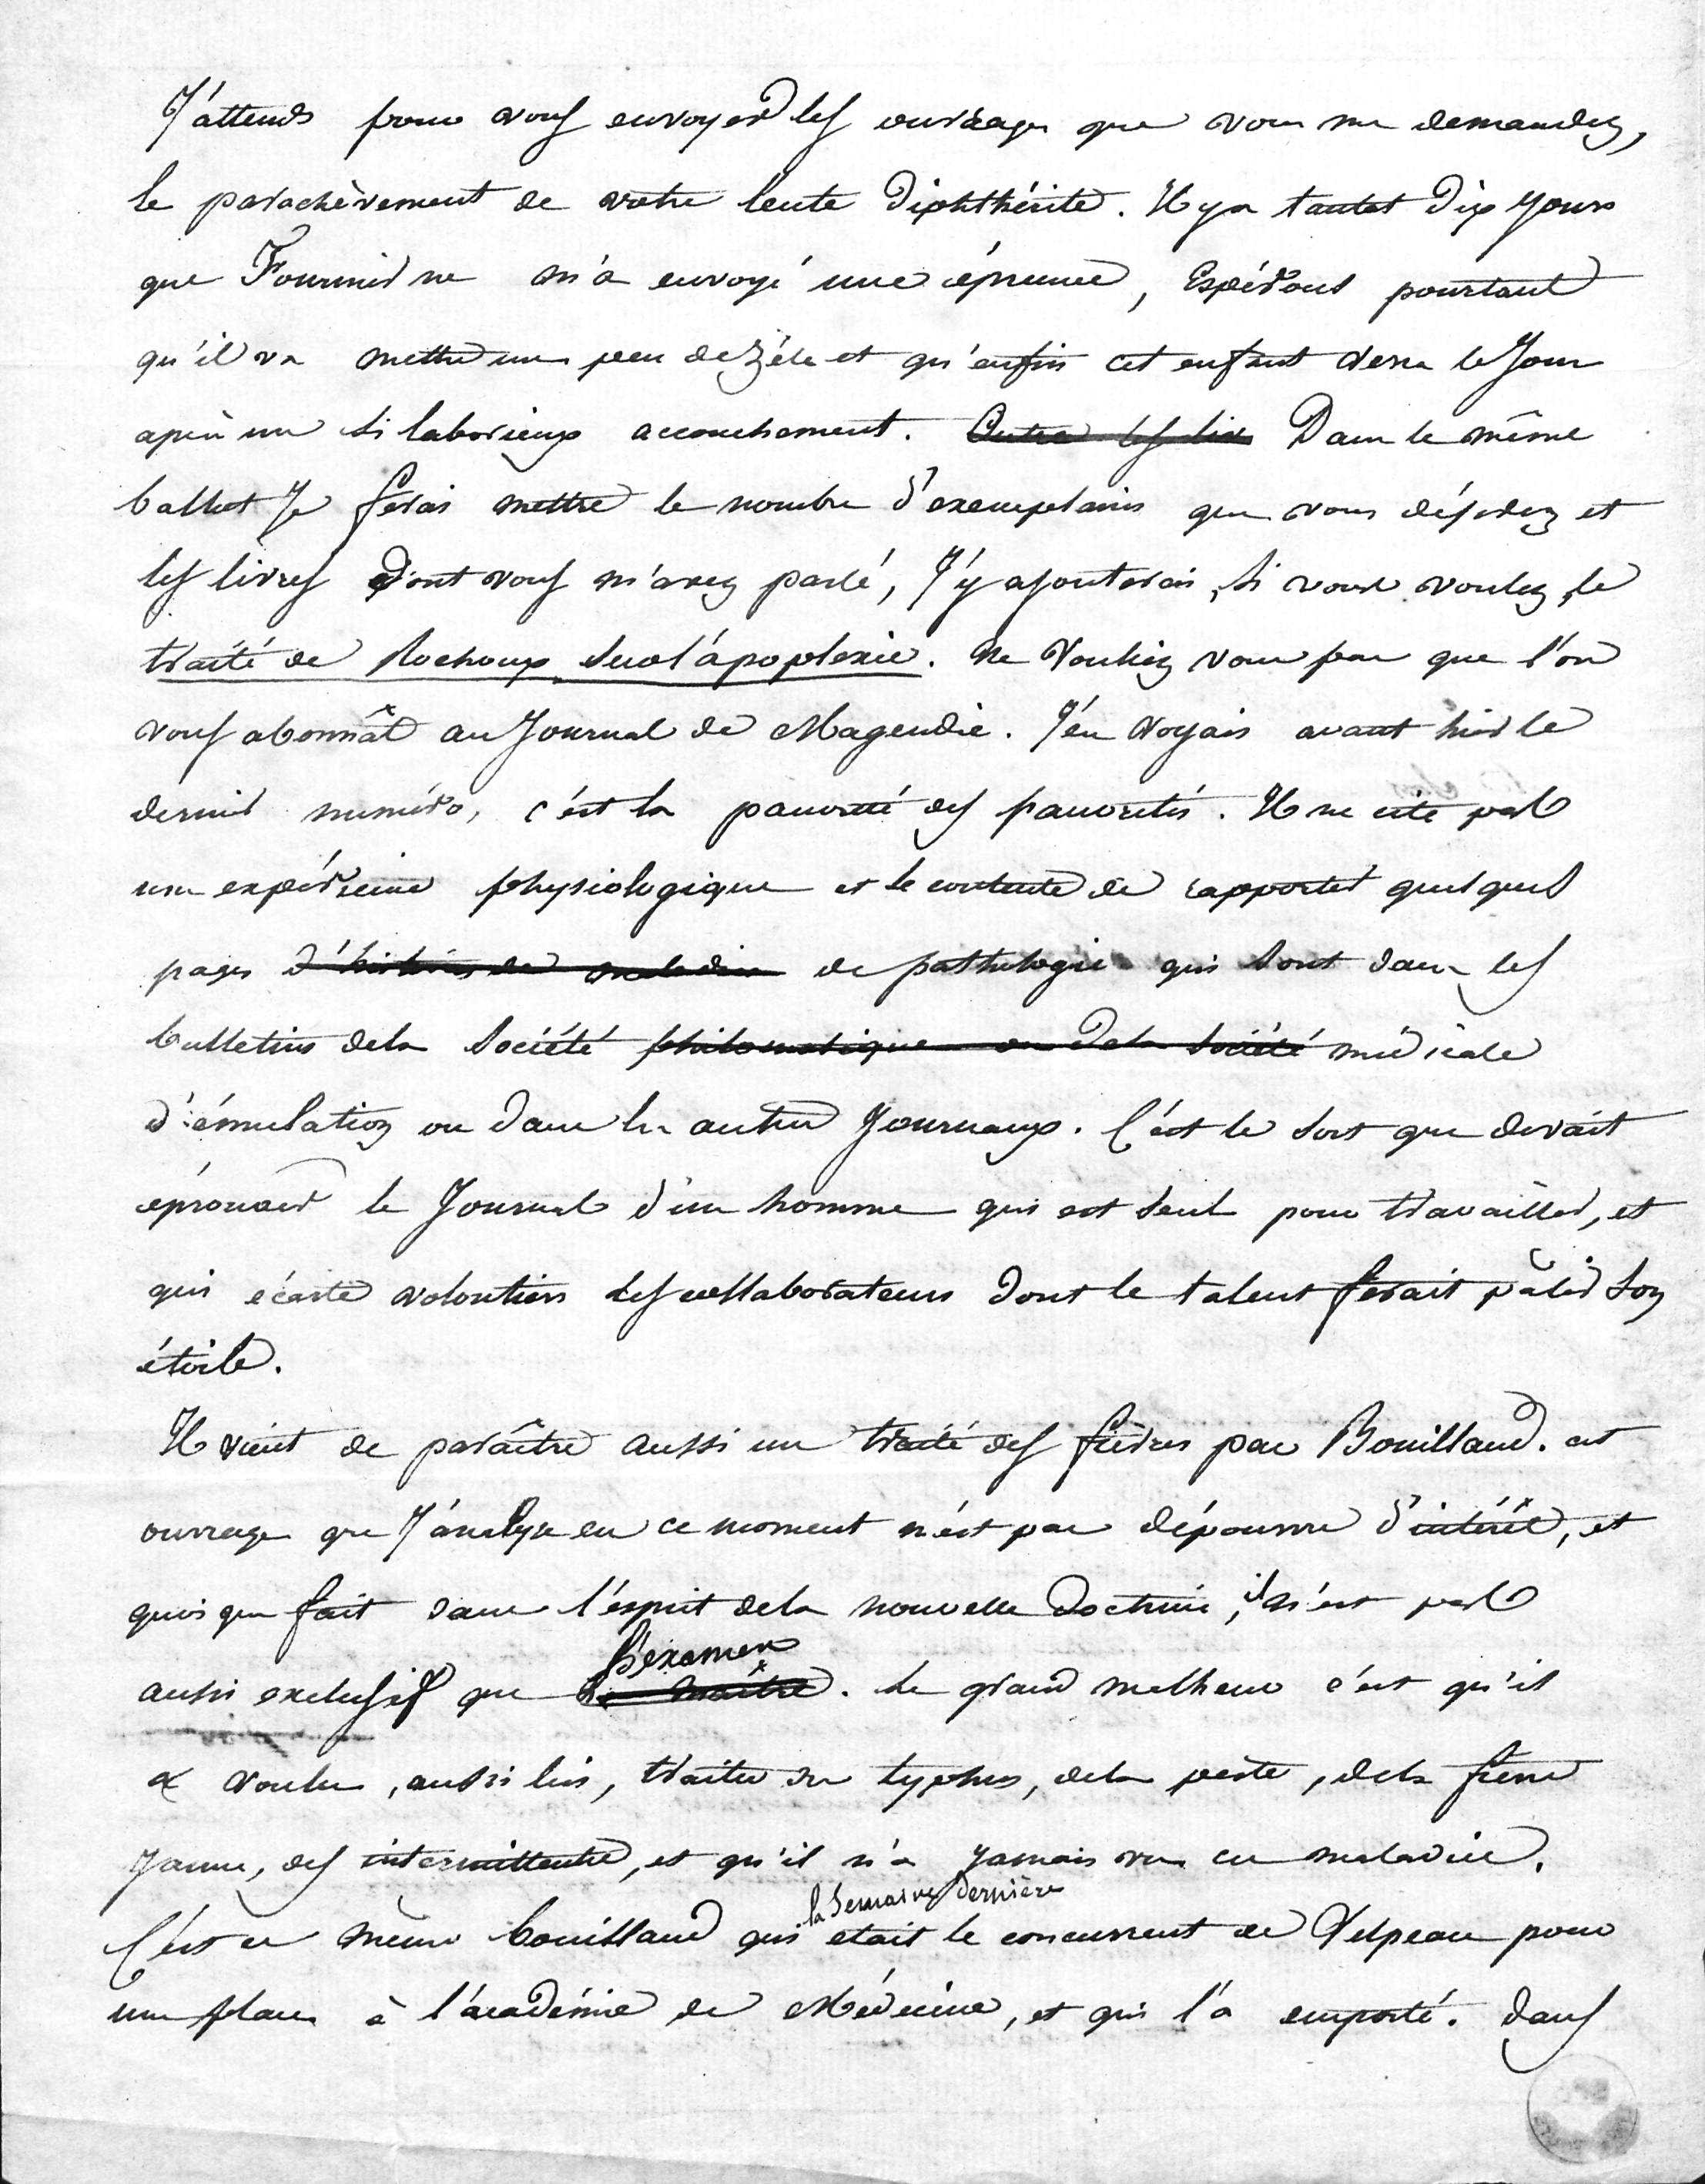 J'attends pour vous envoyer les ouvrages que vous me demandez,
le parachèvement de votre lente Diphthérite. Il y a tantot dix jours
que Fournier ne m'a envoyé une épreuve, Espérons pourtant
qu'il va mettre un peu de zéle et qu'enfin cet enfant verra le jour
après un si laborieux accouchement. Outre les liv Dans le même
ballot Je ferai mettre le nombre d'exemplaires que vous désirez et
les livres dont vous m'avez parlé, J'y ajouterai, si vous voulez, le
traité de Rochoux sur l'apoplexie. Ne Vouliez vous pas que l'on
vous abonnât au Journal de Magendie. J'en voyais avant hier le
dernier numéro, c'est la pauvreté des pauvretés. Il ne cite pas
une expérience physiologique et se contente de rapporter quelques
pages d'histoires de maladies de pathologie qui sont dans les
bulletins dela Société philomatique ou Dela Société médicale
d'émulation ou dans les autres Journaux. C'est le sort que devait
éprouver le Journal d'un homme qui est seul pour travailler, et
qui écarte volontiers les collaborateurs dont le talent ferait pâlir son
étoile.
Il vient de paraître aussi un traité des fièvres par Bouillaud. cet
ouvrage que J'analyse en ce moment n'est pas dépourvu d'intérêt, et
quoique fait dans l'esprit dela nouvelle Doctrine, il n'est pas
aussi exclusif que l'examen le maître. Le grand malheur c'est qu'il
a voulu, aussi lui, traiter du typhus, dela peste, dela fievre
Jaune, des intermittentes, et qu'il n'a Jamais vu ces maladies.
C'est ce même bouillaud qui la Semaine dernière etait le concurrent de Velpeau pour
une place à l'académie de Médecine, et qui l'a emporté. dans